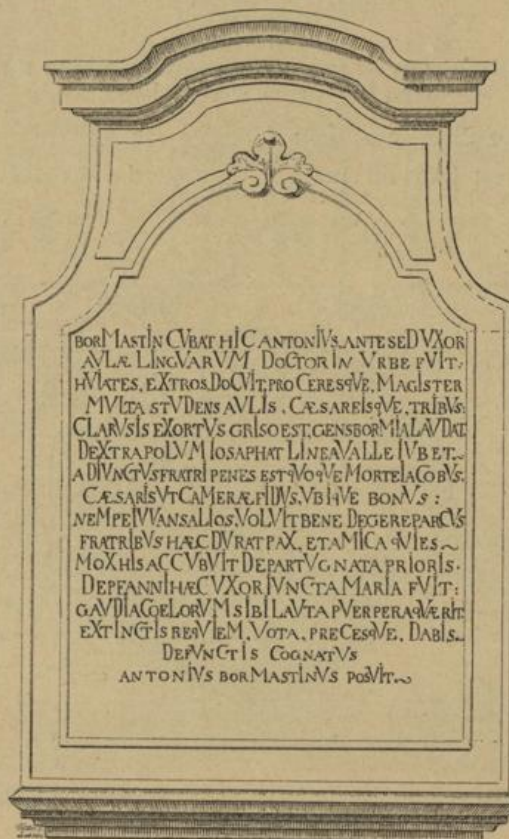 BORMASTIN CVBAT HIC ANTONIVS. ANTE SED VXOR
AVLÆ LINGVARVM DOCTOR IN VRBE FVIT:
HVIATES, EXTROS. DOCVIT, PROCERESQVE. MAGISTER
MVLTA STVDENS AVLIS. CÆSAREISQVE. TRIBVS:
CLARVS IS EXORTVS GRISO EST, GENS BORMIA LAVDAT.
DEXTRA POLVM IOSAPHAT LINEA VALLE IVBET.~
ADIVNCTVS FRATRI PENES EST QVOQVE MORTE IACOBVS.
CÆSARIS VT CAMERÆ FIDVS. VBIQVE BONVS:
NEMPE IVVANS ALIOS. VOLVIT BENE DEGERE PARCVS
FRATRIBVS HÆC DVRAT PAX. ET AMICA QVIES~
MOX HIS ACCVBVIT DEPARTV GNATA PRIORIS.
DEPFANNI HÆC VXOR IVNCTA MARIA FVIT:
GAVDIA COELORVM SIBI LAVTA PVERPERA QVÆRIT.
EXTINCTIS REQVIEM. VOTA. PRECESQVE. DABIS.~
DEFVNCTIS COGNATVS
ANTONIVS BORMASTINVS POSVIT.~